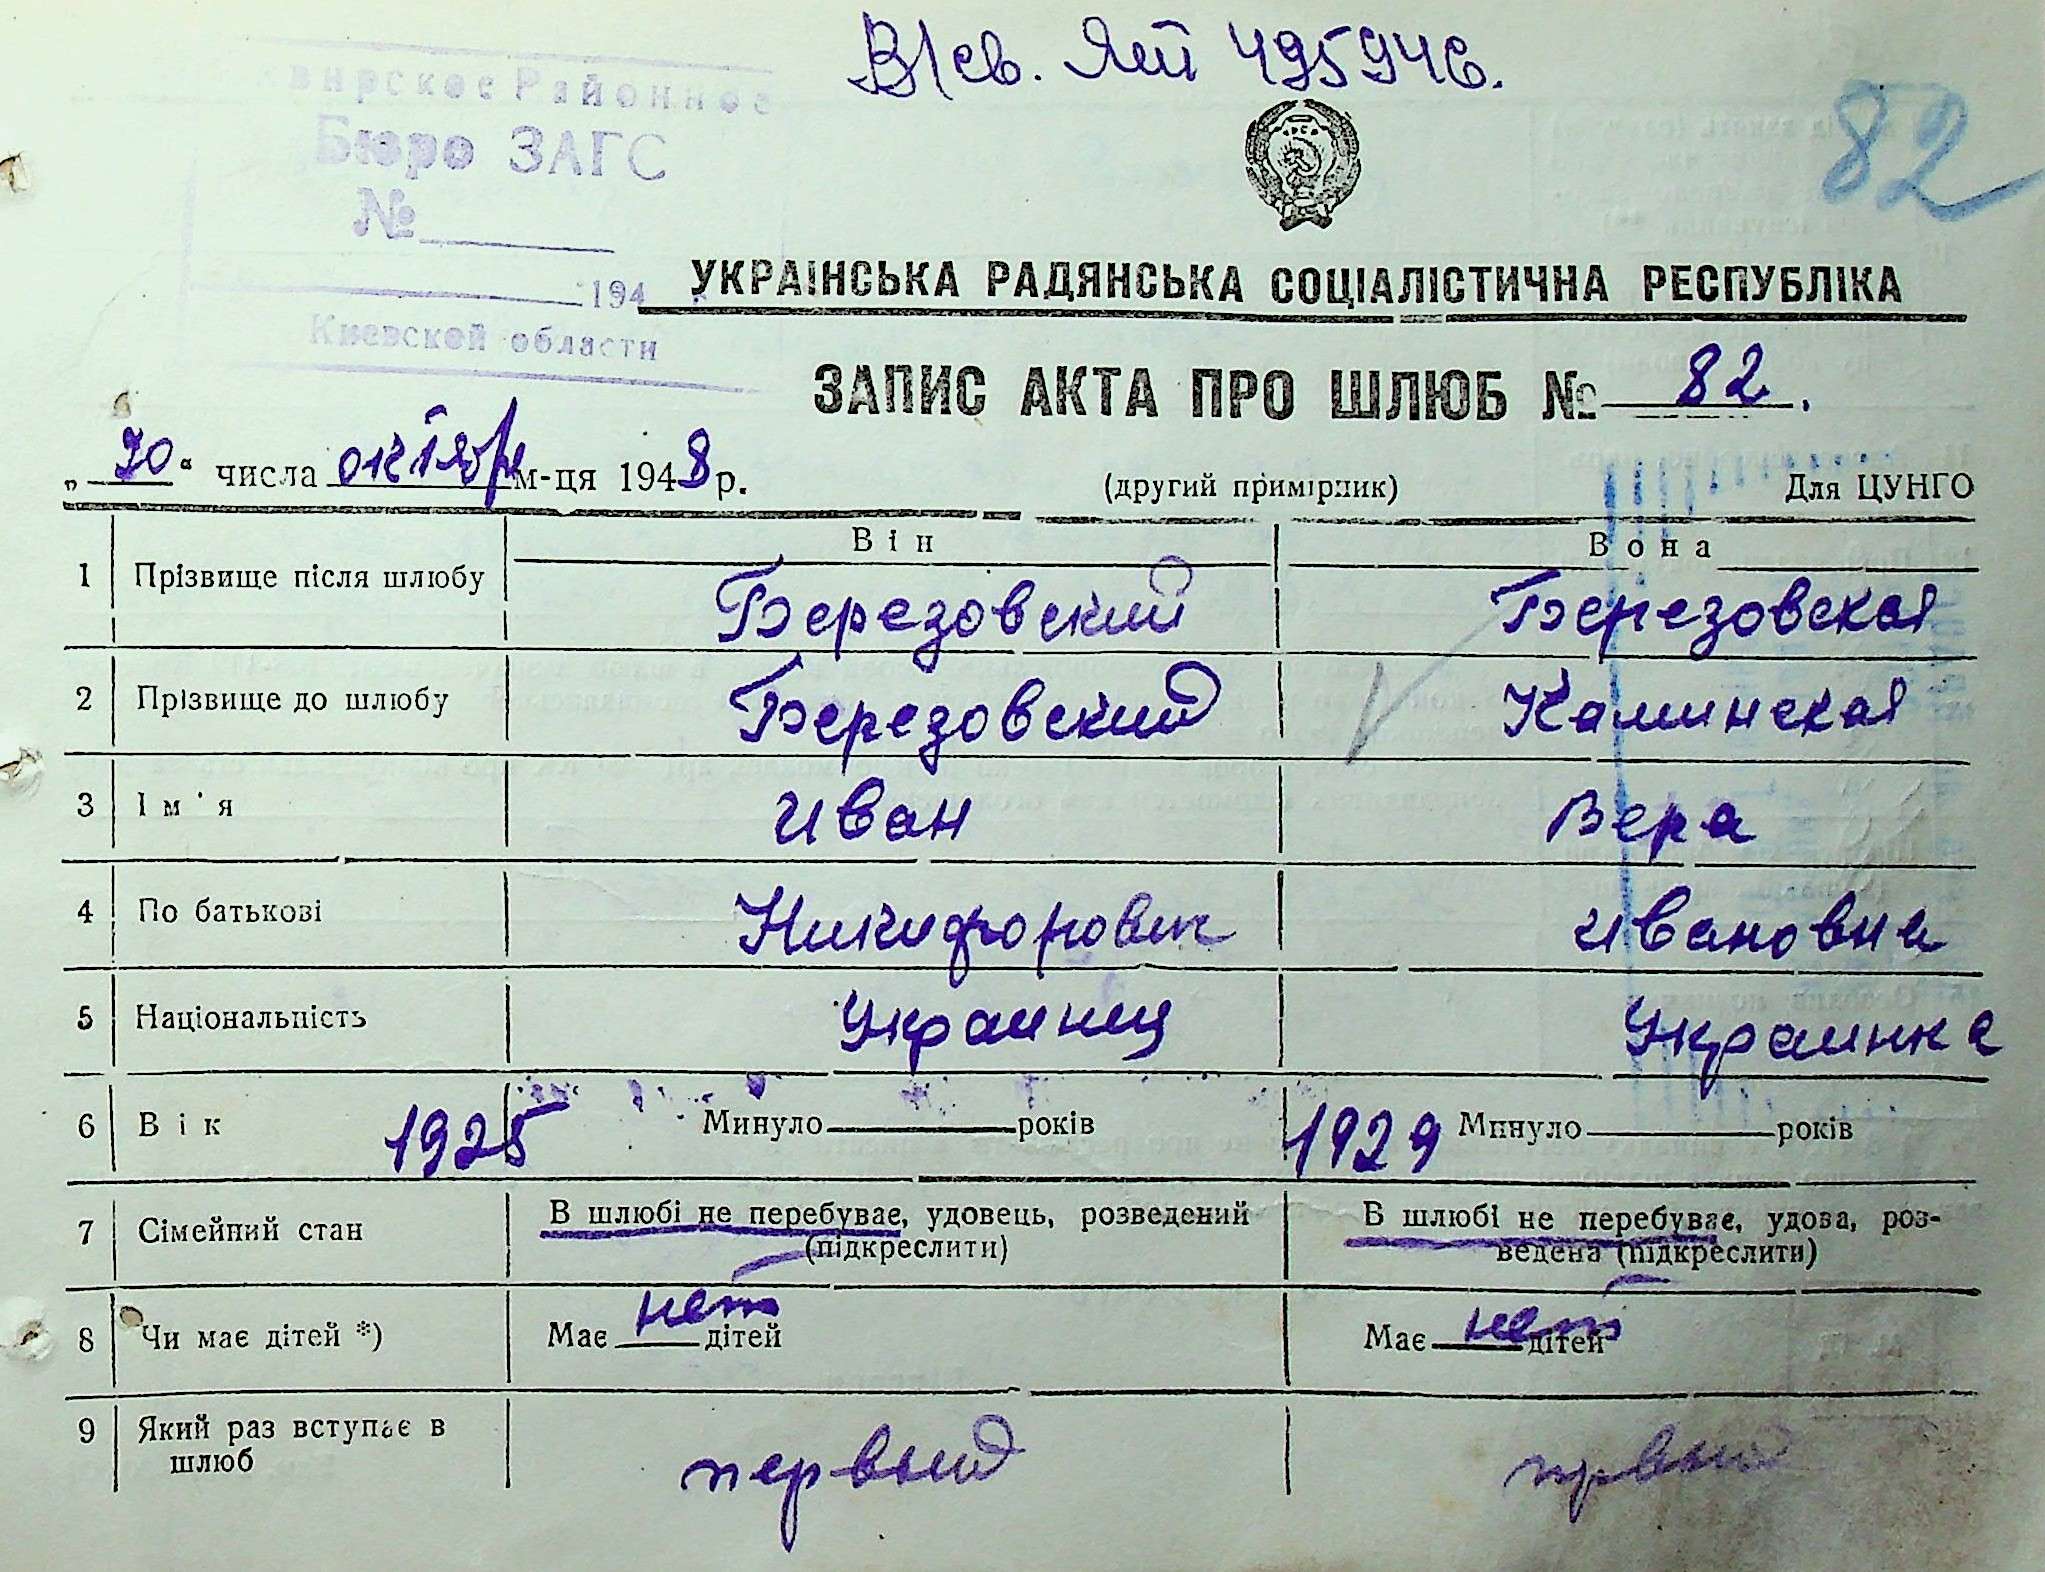 В/св. ЯЙ 495946.
82
Районное
Бюро ЗАГС
№
194
Киевской области
УКРАЇНСЬКА РАДЯНСЬКА СОЦІАЛІСТИЧНА РЕСПУБЛІКА
ЗАПИС АКТА ПРО ШЛЮБ № 82.
числа октября м-ця 1948 р. (другий примірник) Для ЦУНГО
Він Вона
1 Прізвище після шлюбу Березовский Березовская
2 Прізвище до шлюбу Березовский Каминская
3 Ім'я Иван Вера
4 По батькові Никифорович Ивановна
5 Національність Украинец Украинка
6 Вік 1925 Минуло років 1929 Минуло років
7 Сімейний стан В шлюбі не перебуває, удовець, розведений (підкреслити) В шлюбі не перебуває, удова, роз-
ведена (підкреслити)
8 Чи має дітей *) Має нет дітей Має нет дітей
9 Який раз вступає в шлюб первый первый